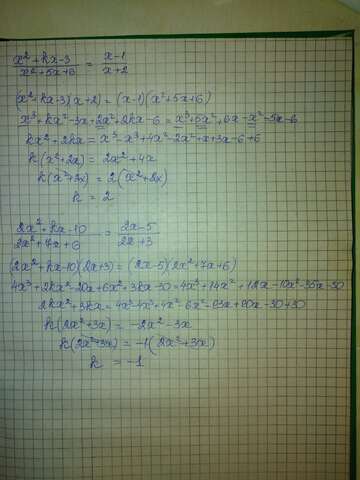 x²+kx-3 / x²+5x+6 = x-1 / x+2
(x²+kx-3)(x+2) = (x-1)(x²+5x+6)
x³+kx²-3x+2x²+2kx-6 = x³+5x²+6x-x²-5x-6
kx²+2kx = x³-x³+4x²-2x²+x+3x-6+6
k(x²+2x) = 2x²+4x
k(x²+2x) = 2(x²+2x)
k = 2
2x²+kx-10 / 2x²+7x+6 = 2x-5 / 2x+3
(2x²+kx-10)(2x+3) = (2x-5)(2x²+7x+6)
4x³+2kx²-20x+6x²+3kx-30=4x³+14x²+12x-10x²-35x-30
2kx²+3kx = 4x³-4x³+4x²-6x²-23x+20x-30+30
k(2x²+3x) = -2x²-3x
k(2x²+3x) = -1(2x²+3x)
k = -1